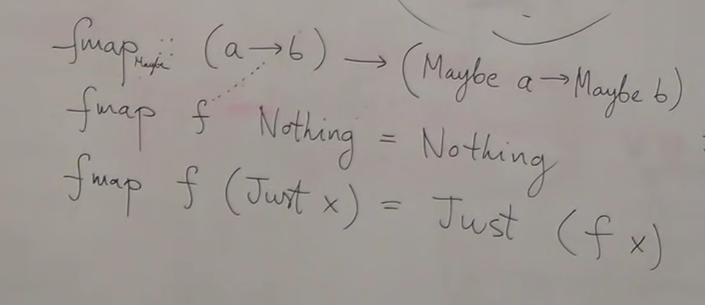 fmap Maybe :: (a → b) → (Maybe a → Maybe b)
fmap f Nothing = Nothing
fmap f (Just x) = Just (f x)